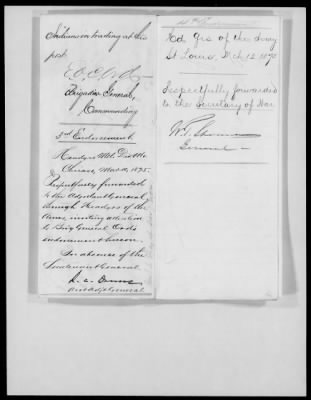 Indians in trading at this
post.
E.O.C. Ord
Brigadier General,
Commanding
3rd Endorsement.
Headqrs Mil. Div. Mo.
Chicago, March 10, 1875.
Respectfully forwarded
to the Adjutant General
through Headqrs of the
Army, inviting attention
to Brig General Ord's
endorsement hereon.
In absence of the
Lieutenant General
Asst Adjt General
4th Endorsement
Hd Qrs of the Army
St Louis, Mch 12 1875
Respectfully forwarded
to the Secretary of War
W.T. Sherman
General